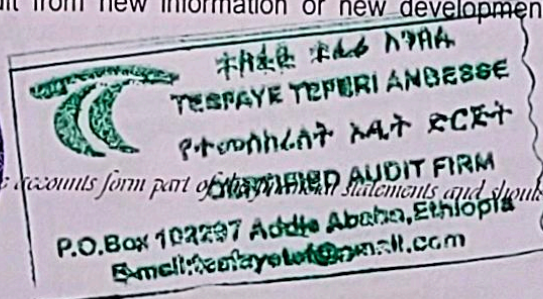 from new information or new developmen
ተስፋዬ ተፈሪ አንበሴ
TESFAYE TEFERI ANBESSE
የተመሰከረለት ኦዲት ድርጅት
CERTIFIED AUDIT FIRM
accounts form part of statements and shoul
P.O.Box 102297 Addis Ababa, Ethiopia